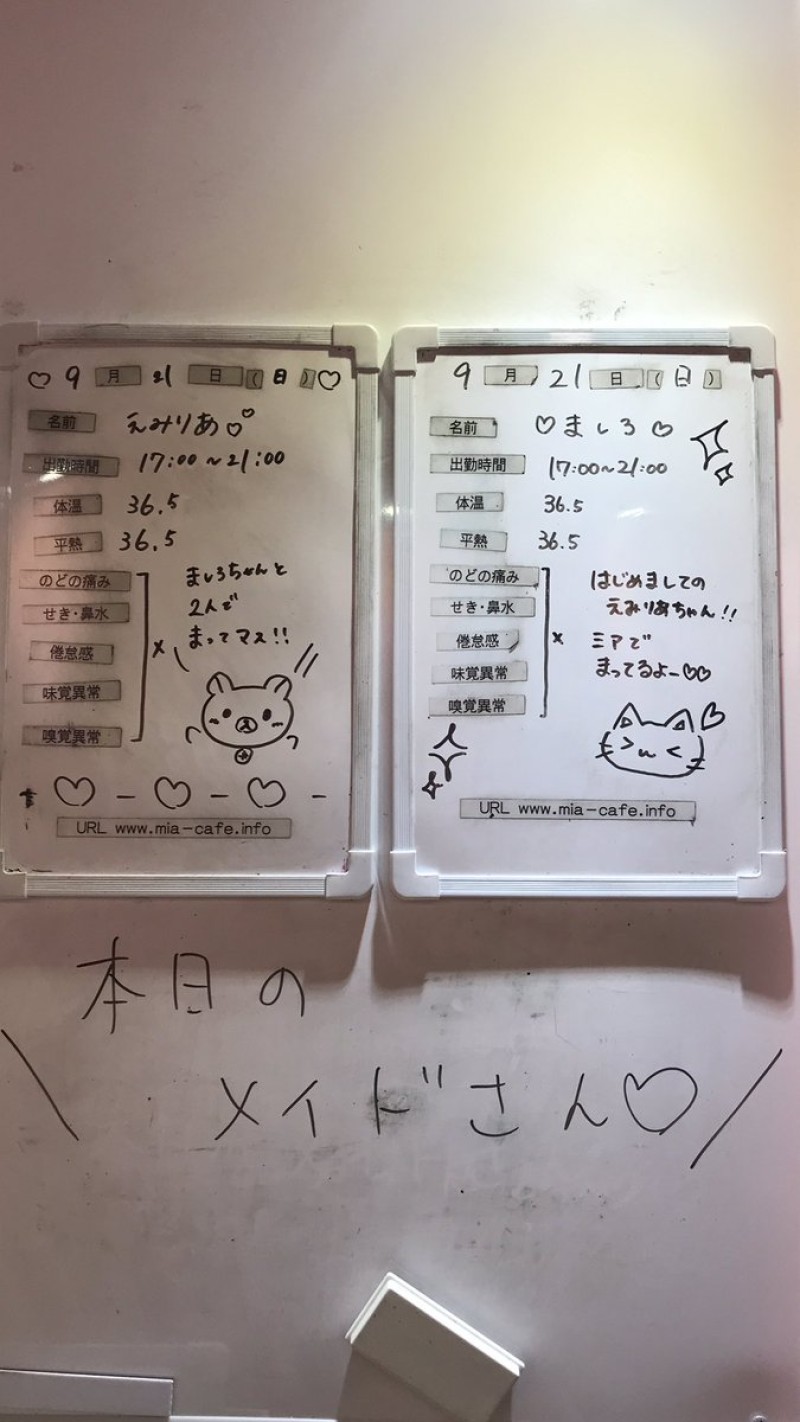 ♡ 9 月 21 日 ( 日 ) ♡
名前 えみりあ♡♡
出勤時間 17:00~21:00
体温 36.5
平熱 36.5
のどの痛み
せき・鼻水
倦怠感
味覚異常
嗅覚異常
×
ましろちゃんと
2人で
まってマス!!
URL www.mia-cafe.info
9 月 21 日 ( 日 )
名前 ♡ましろ♡
出勤時間 17:00~21:00
体温 36.5
平熱 36.5
のどの痛み
せき・鼻水
倦怠感
味覚異常
嗅覚異常
×
はじめましての
えみりあちゃん!!
ミアで
まってるよー♡♡
URL www.mia-cafe.info
本日の
メイドさん♡